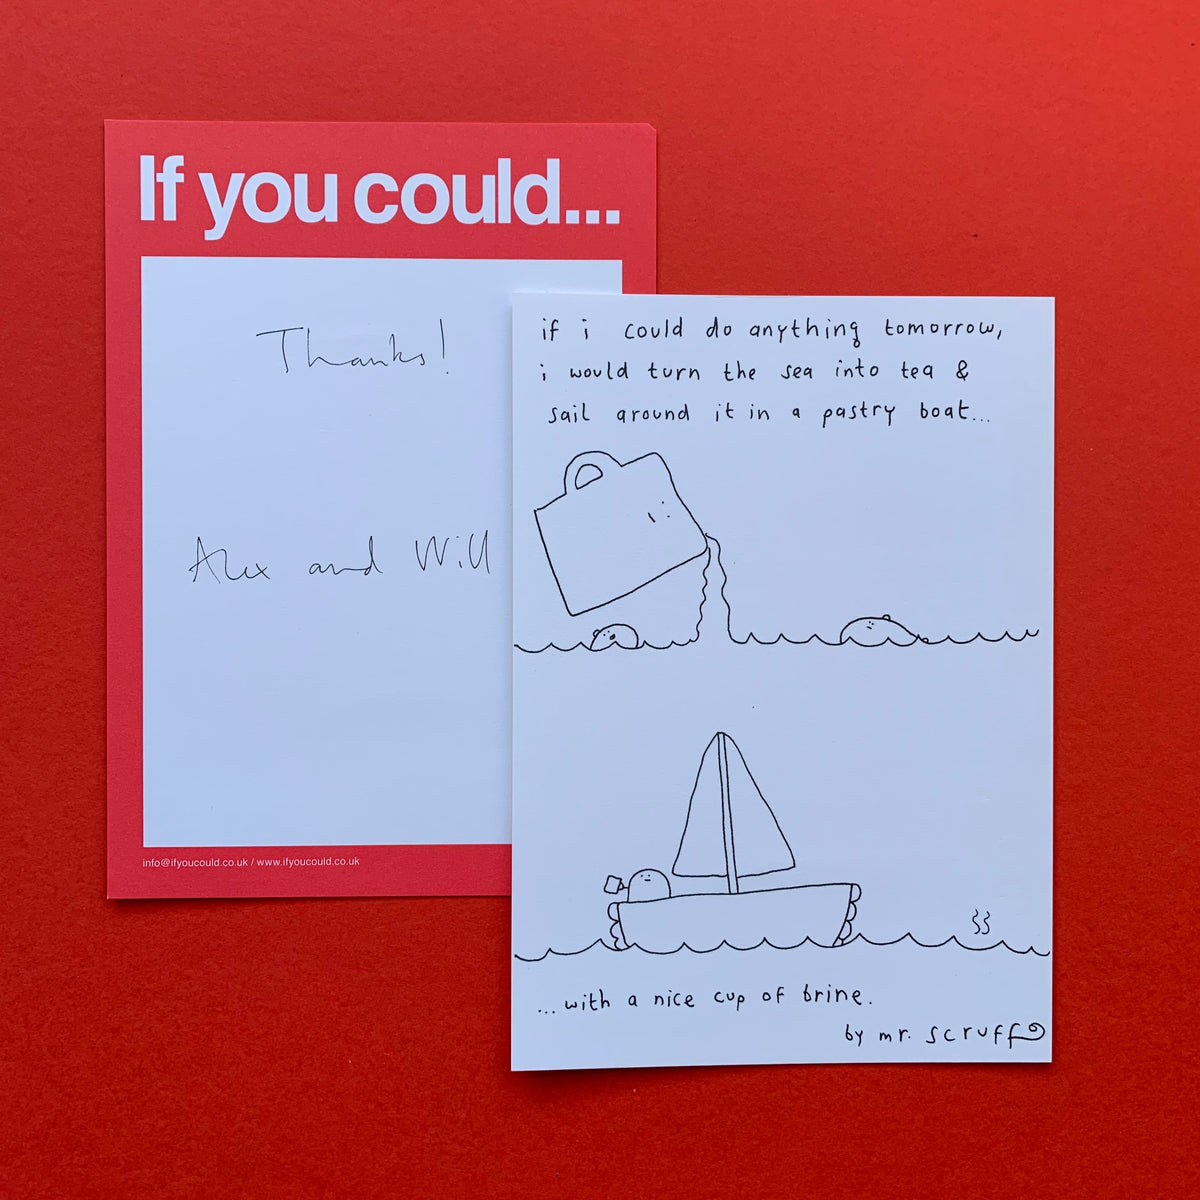 If you could...
Thanks!
Alex and Will
info@ifyoucould.co.uk / www.ifyoucould.co.uk
if i could do anything tomorrow,
i would turn the sea into tea &
sail around it in a pastry boat...
...with a nice cup of brine.
by mr. scruff